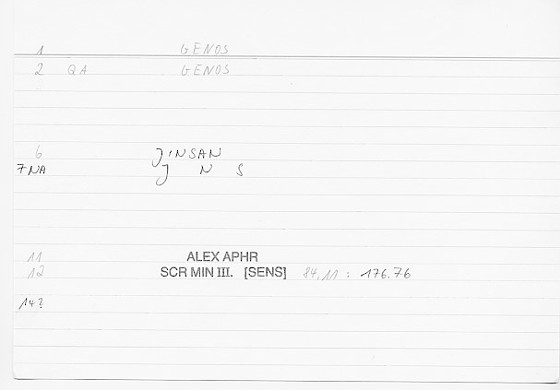 1 GENOS
2 QA GENOS
6 JINSAN
7 NA J N S
11 ALEX APHR
12 SCR MIN III. [SENS] 84,11 : 176.76
14?